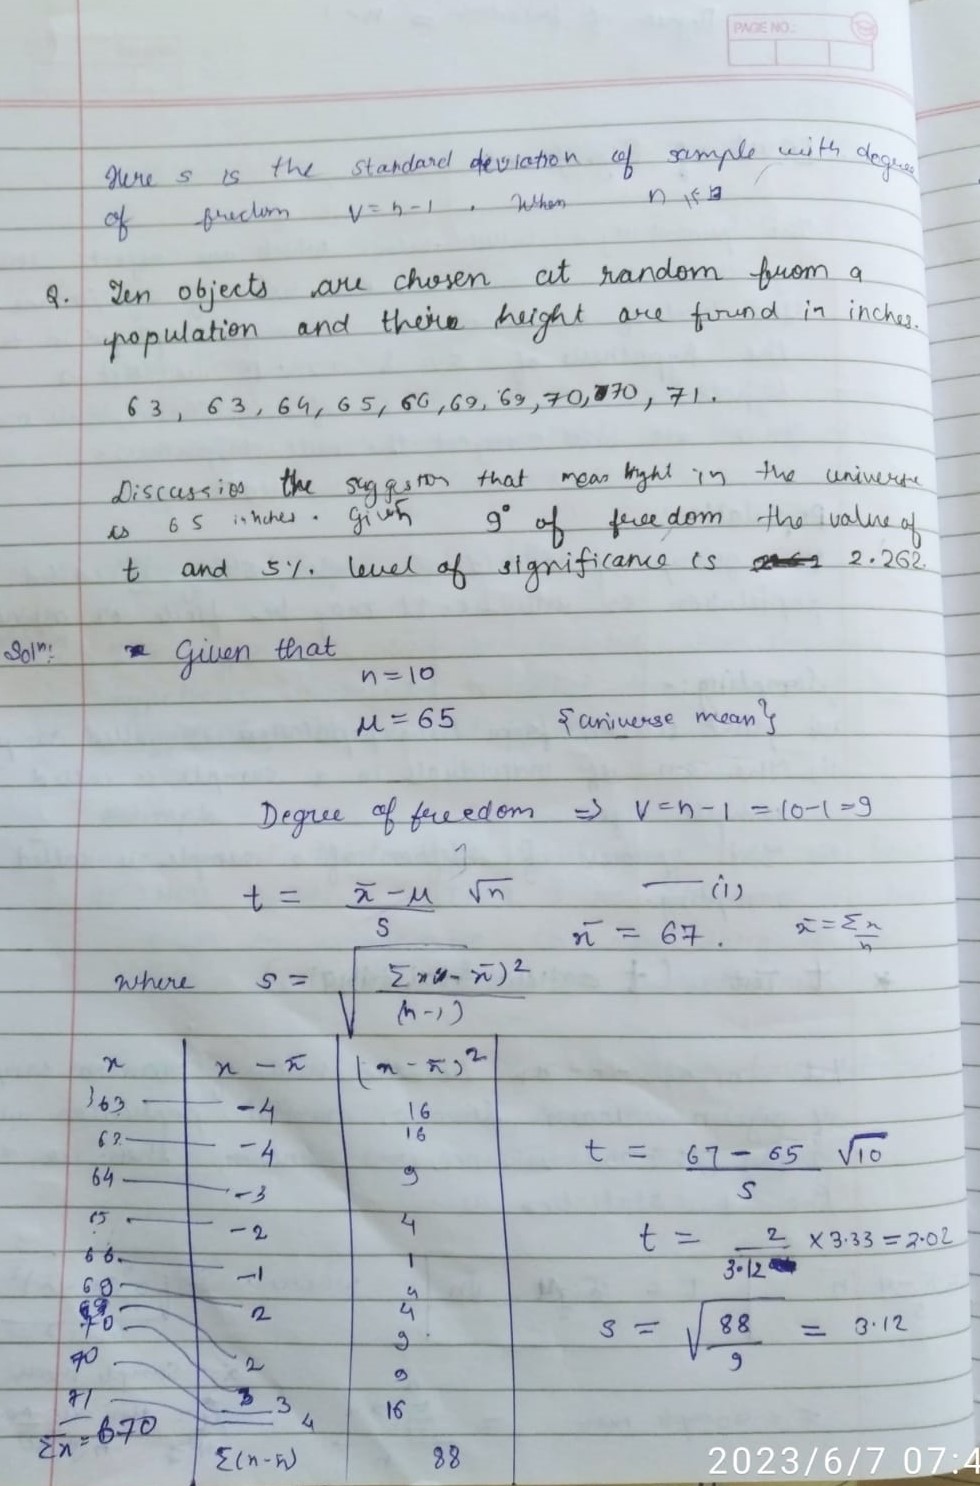 PAGE NO.:
Here s is the standard deviation of sample with degree
of fredom v=n-1 . When n
Q. Ten objects are chosen at random from a
population and there height are found in inches.
63, 63, 64, 65, 66, 69, 69, 70, 70, 71.
the suggestion that mean hight in the universe
is 65 inches. Given 9° of freedom the value of
t and 5%. level of significance is 2.262.
Solⁿ: Given that
n=10
μ = 65 {universe mean}
Degree of freedom ⇒ v=n-1 = 10-1=9
t = x̄ - μ √n / S —(i)
x̄ = 67. x̄ = Σx/n
where s = √ Σ(x - x̄)² / (n-1)
x x - x̄ (x - x̄)²
63 -4 16
63 -4 16
64 -3 9
65 -2 4
66 -1 1
69 2 4
69 2 4
70 3 9
70 3 9
71 4 16
Σx = 670 Σ(x-x̄) 88
t = 67 - 65 √10 / S
t = 2 / 3.12 × 3.33 = 2.02
s = √ 88 / 9 = 3.12
2023/6/7 07:4